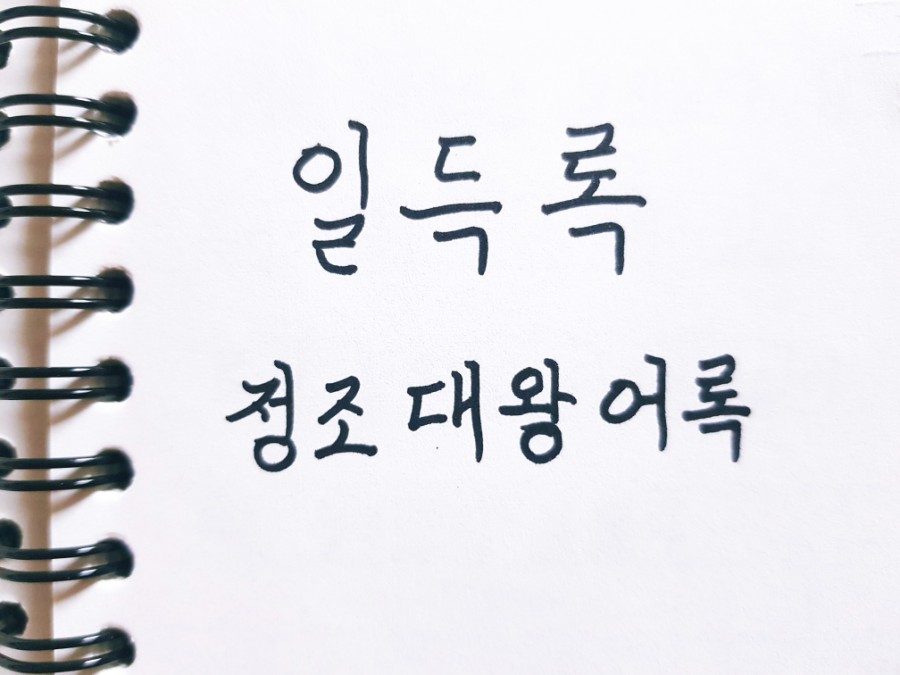 일득록
정조 대왕 어록